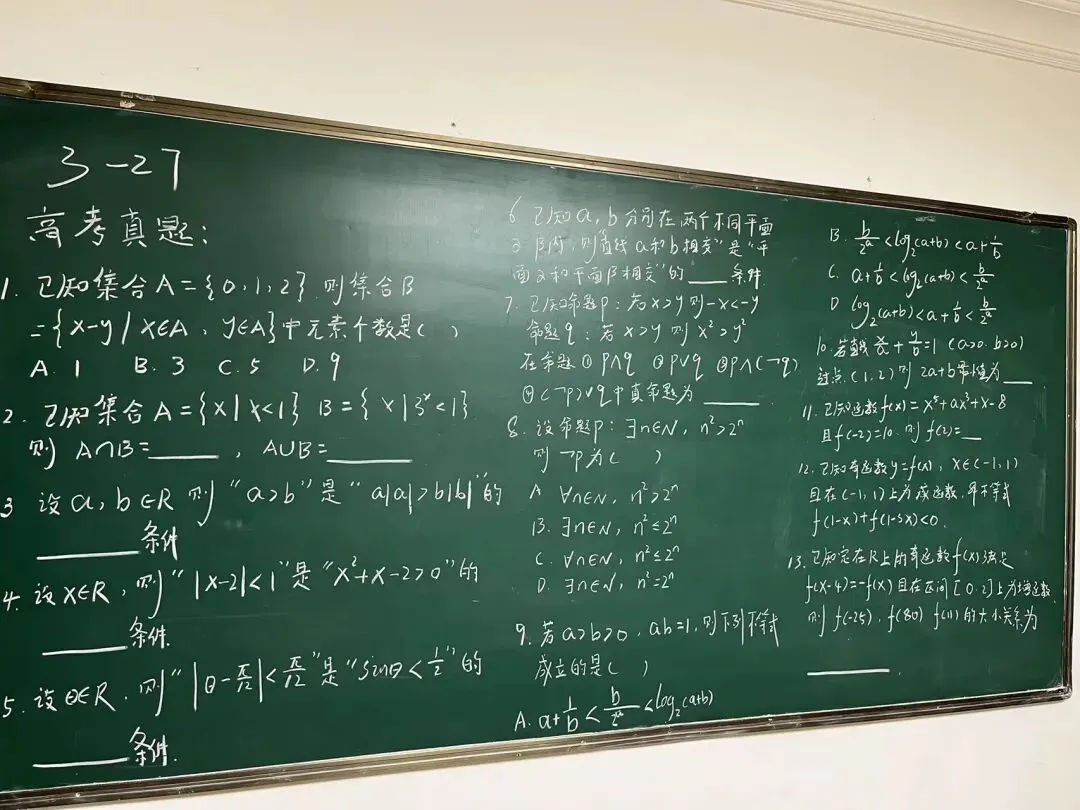 3-27
高考真题:
1. 已知集合A={0,1,2}.则集合B
={x-y|x∈A, y∈A}中元素个数是( )
A. 1 B. 3 C. 5 D. 9
2. 已知集合A={x|x<1} B={x|3ˣ<1}
则 A∩B=____, A∪B=____
3 设a, b∈R 则"a>b"是"a|a|>b|b|"的
____条件
4. 设x∈R, 则"|x-2|<1"是"x²+x-2>0"的
____条件.
5. 设θ∈R. 则"|θ-π/12|<π/12"是"sinθ<1/2"的
____条件.
6. 已知a, b分别在两个不同平面
β内, 则"直线a和b相交"是"平
面α和平面β相交"的____条件
7. 已知命题p: 若x>y则-x<-y
命题q: 若x>y则x²>y²
在命题①p∧q ②p∨q ③p∧(¬q)
④(¬p)∨q中真命题为____
8. 设命题p: ∃n∈N, n²>2ⁿ
则¬p为( )
A ∀n∈N, n²>2ⁿ
B. ∃n∈N, n²≤2ⁿ
C. ∀n∈N, n²≤2ⁿ
D. ∃n∈N, n²=2ⁿ
9. 若a>b>0, ab=1, 则下列不等式
成立的是( )
A. a+1/b<b/2ᵃ<log₂(a+b)
B. b/2ᵃ<log₂(a+b)<a+1/b
C. a+1/b<log₂(a+b)<b/2ᵃ
D log₂(a+b)<a+1/b<b/2ᵃ
10. 若直线x/a+y/b=1 (a>0. b>0)
过点(1,2)则2a+b 值为____
11. 已知函数f(x)=x⁵+ax³+x-8
且f(-2)=10. 则f(2)=__
12. 已知奇函数y=f(x), x∈(-1,1)
且在(-1,1)上为减函数, 不等式
f(1-x)+f(1-3x)<0.
13. 已知定在R上的奇函数f(x)满足
f(x-4)=-f(x)且在区间[0,2]上为增函数
则f(-25), f(80) f(11)的大小关系为
____